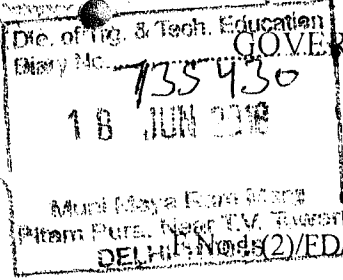 Dte. of Trg. & Tech. Education
GOVE
Diary No. 735430
18 JUN
Muni Maya Ram Marg
Pitam Pura, Near T.V. Tower
DELHI
(2)/ED